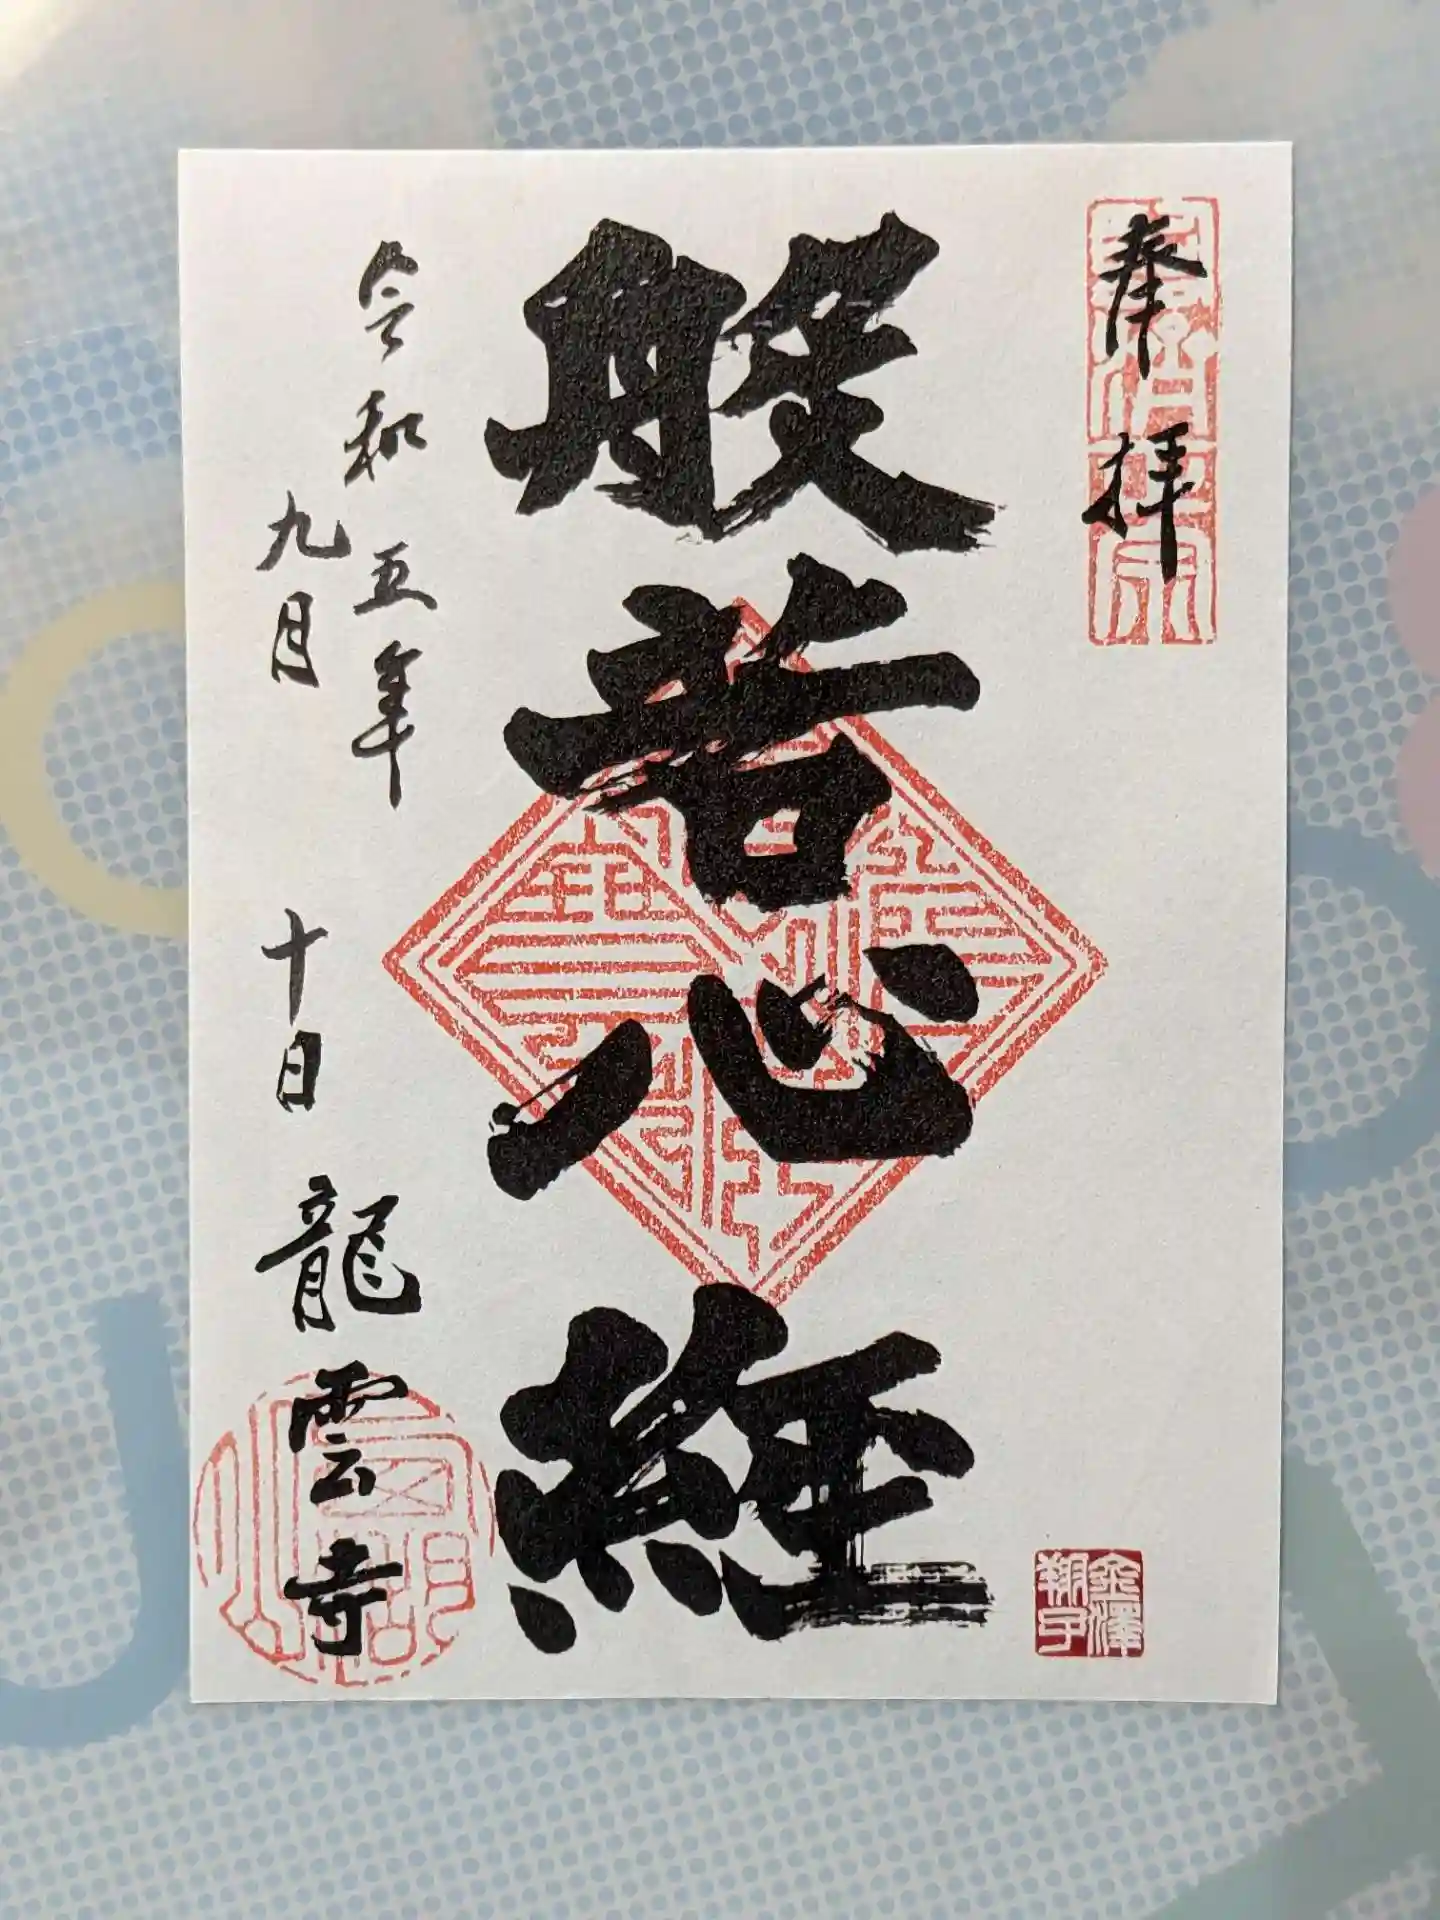 奉拝
般若心経
令和五年
九月十日
龍雲寺
金澤
翔子